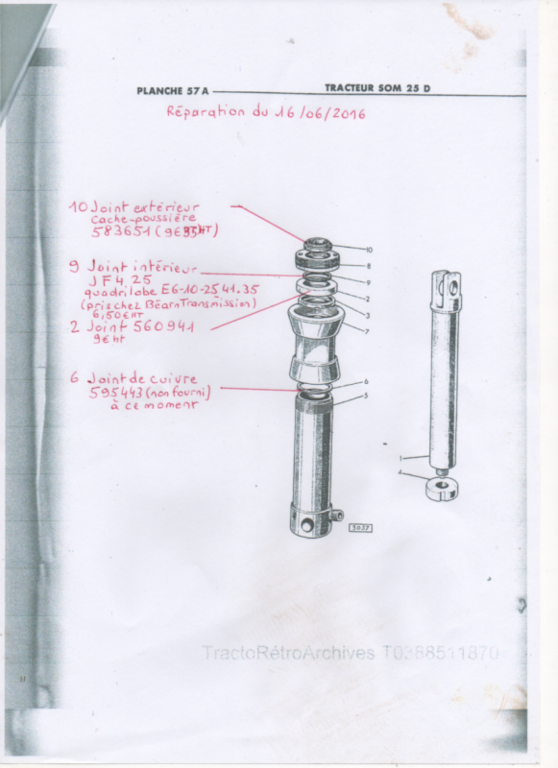 PLANCHE 57 A TRACTEUR SOM 25 D
Réparation du 16/06/2016
10 Joint extérieur
cache-poussière
583651 (9€ HT)
9 Joint intérieur
JF 4.25
quadrilobe E6-10-25 41.35
(pris chez Béarn Transmission)
6,50€ HT
2 Joint 560941
9€ HT
6 Joint de cuivre
595443 (non fourni)
à ce moment
10
8
9
2
3
7
6
5
1
4
5037
TractoRétroArchives T0388511870